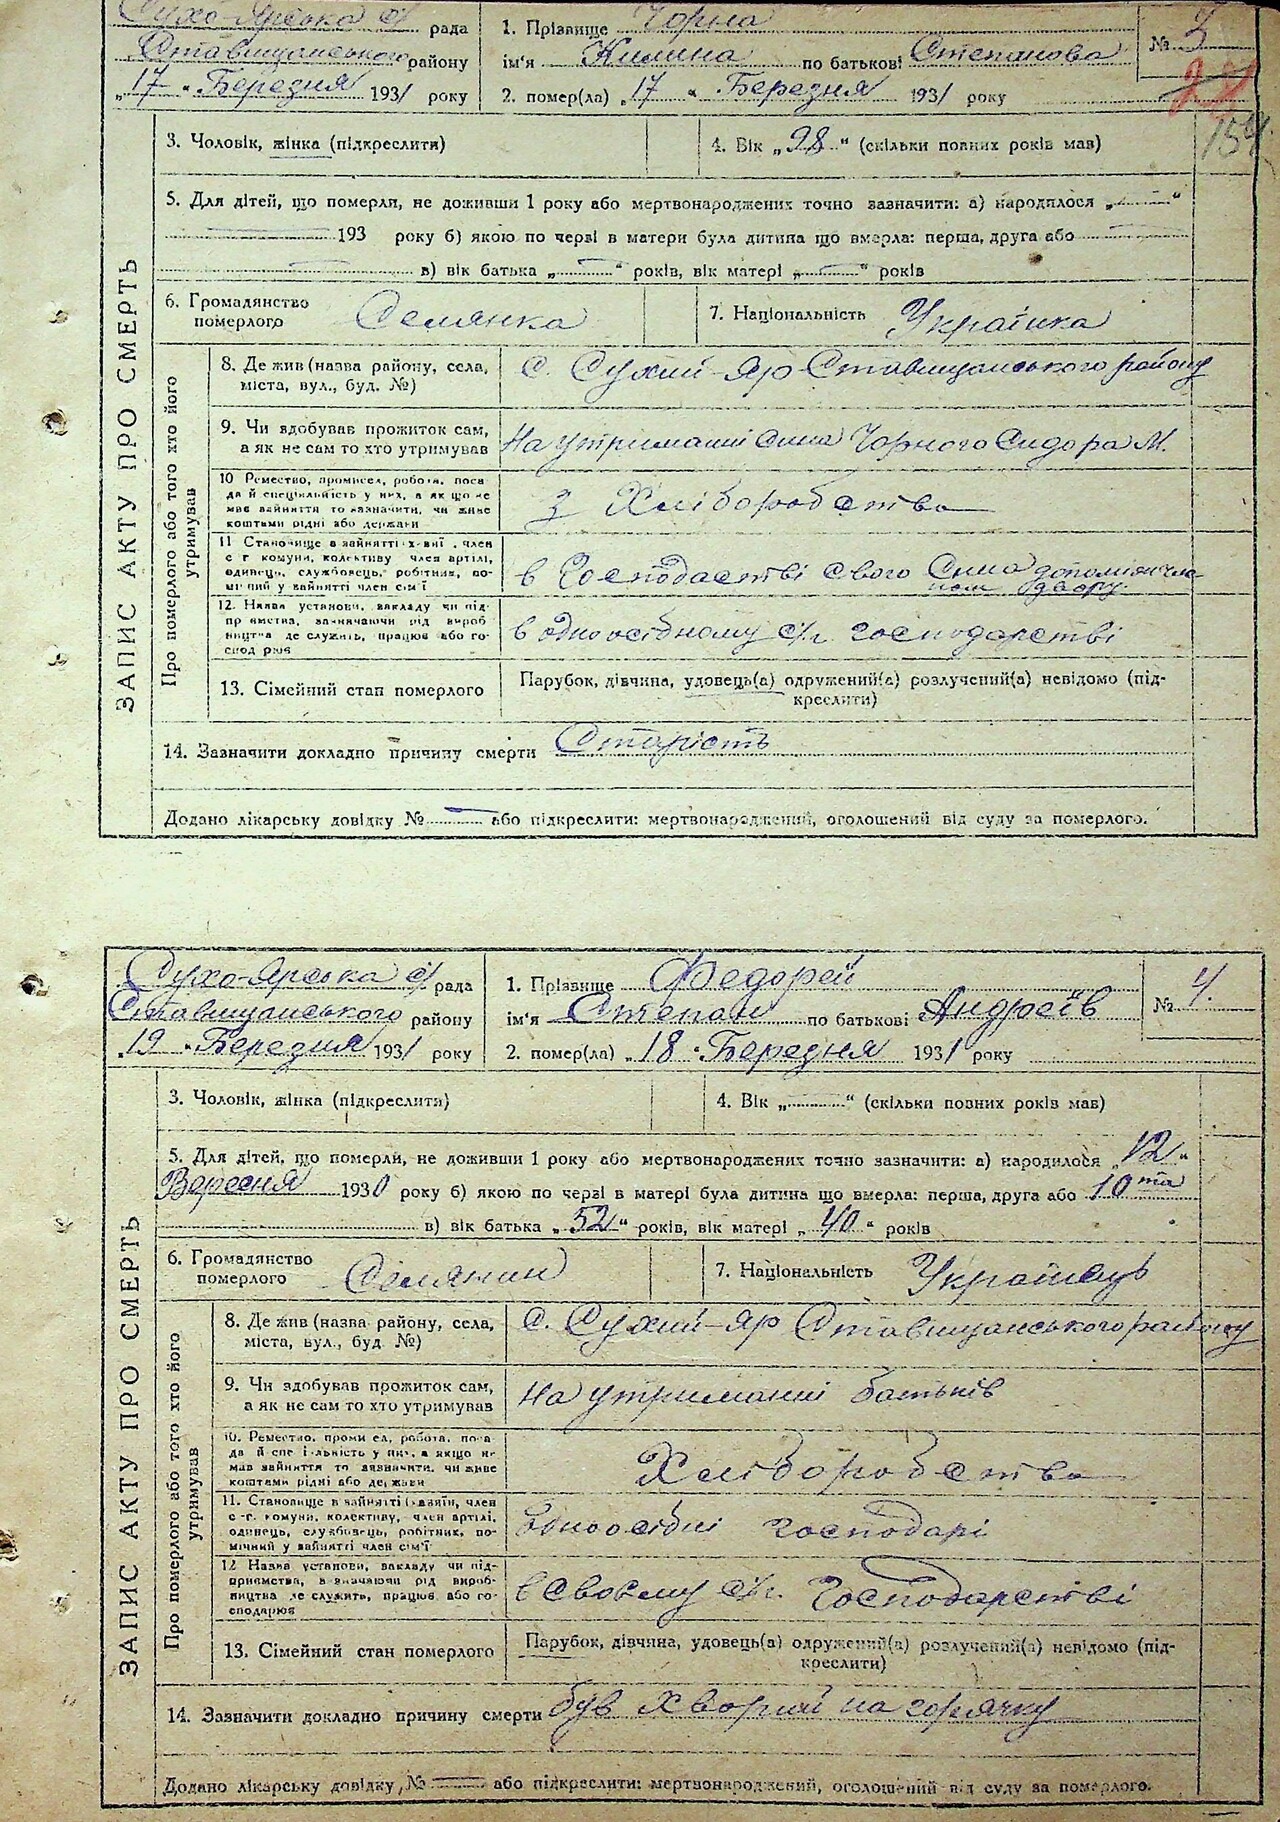 Сухо-Ярська с/ рада
Ставищанського району
„17 “ Березня 1931 року
1. Прізвище Чорна
ім'я Килина по батькові Степанова
2. помер(ла) „17 “ Березня 1931 року
№ 3
154
ЗАПИС АКТУ ПРО СМЕРТЬ
3. Чоловік, жінка (підкреслити)
4. Вік „98“ (скільки повних років мав)
5. Для дітей, що померли, не доживши 1 року або мертвонароджених точно зазначити: а) народилося „—“
193 року б) якою по черзі в матери була дитина що вмерла: перша, друга або —
— в) вік батька „—“ років, вік матері „—“ років
6. Громадянство
померлого Селянка
7. Національність Українка
Про померлого або того хто його
утримував
8. Де жив (назва району, села,
міста, вул., буд. №)
с. Сухий-Яр Ставищанського району
9. Чи здобував прожиток сам,
а як не сам то хто утримував
На утриманні сина Чорного Сидора М.
10 Ремество, промисел, робота, поса
да й спеціяльність у них, а як що не
мав зайняття то зазначити, чи живе
коштами рідні або держави
З Хліборобства
11 Становище в зайнятті х-зяї , член
с г комуни, колективу член артілі,
одинець, службовець, робітник, по-
мічний у зайнятті член сім'ї
в Господастві свого Сина допоміжн чле-
ном двору
12. Назва установи, закладу чи під-
пр вмства, зазначаючи рід вироб-
ництва де служить, працює або го-
спод рює
в одноосібному с/г господарстві
13. Сімейний стан померлого
Парубок, дівчина, удовець(а) одружений(а) розлучений(а) невідомо (під-
креслити)
14. Зазначити докладно причину смерти Старість
Додано лікарську довідку № — або підкреслити: мертвонароджений, оголошений від суду за померлого.
Сухо-Ярська с/ рада
Ставищанського району
„19 “ Березня 1931 року
1. Прізвище Федорей
ім'я Степан по батькові Андреїв
2. помер(ла) „18 “ Березня 1931 року
№ 4.
ЗАПИС АКТУ ПРО СМЕРТЬ
3. Чоловік, жінка (підкреслити)
4. Вік „—“ (скільки повних років мав)
5. Для дітей, що померли, не доживши 1 року або мертвонароджених точно зазначити: а) народилося „12“
Вересня 1930 року б) якою по черзі в матері була дитина що вмерла: перша, друга або 10та
в) вік батька „52“ років, вік матері „40“ років
6. Громадянство
померлого Селянин
7. Національність Українець
Про померлого або того хто його
утримував
8. Де жив (назва району, села,
міста, вул., буд №)
с. Сухий-Яр Ставищанського району
9. Чи здобував прожиток сам,
а як не сам то хто утримував
На утриманні батьків
10. Ремество, проми ел, робота, поса
да й спе і льність у них, а якщо не
мав зайняття то зазначити, чи живе
коштами рідні або держави
Хліборобства
11. Становище в зайнятті (хазяїн, член
с-г. комуни, колективу, член артілі,
одинець, службовець, робітник, по-
мічний у зайнятті член сім'ї
Одноосібні господарі
12 Назва установи, закладу чи під-
приємства, зазначаючи рід вироб-
ництва де служить, працює, або го-
сподарює
в своєму с/г. Господарстві
13. Сімейний стан померлого
Парубок, дівчина, удовець(а) одружений(а) розлучений(а) невідомо (під-
креслити)
14. Зазначити докладно причину смерти був хворий на горячку
Додано лікарську довідку, № — або підкреслити: мертвонароджений, оголошений від суду за померлого.